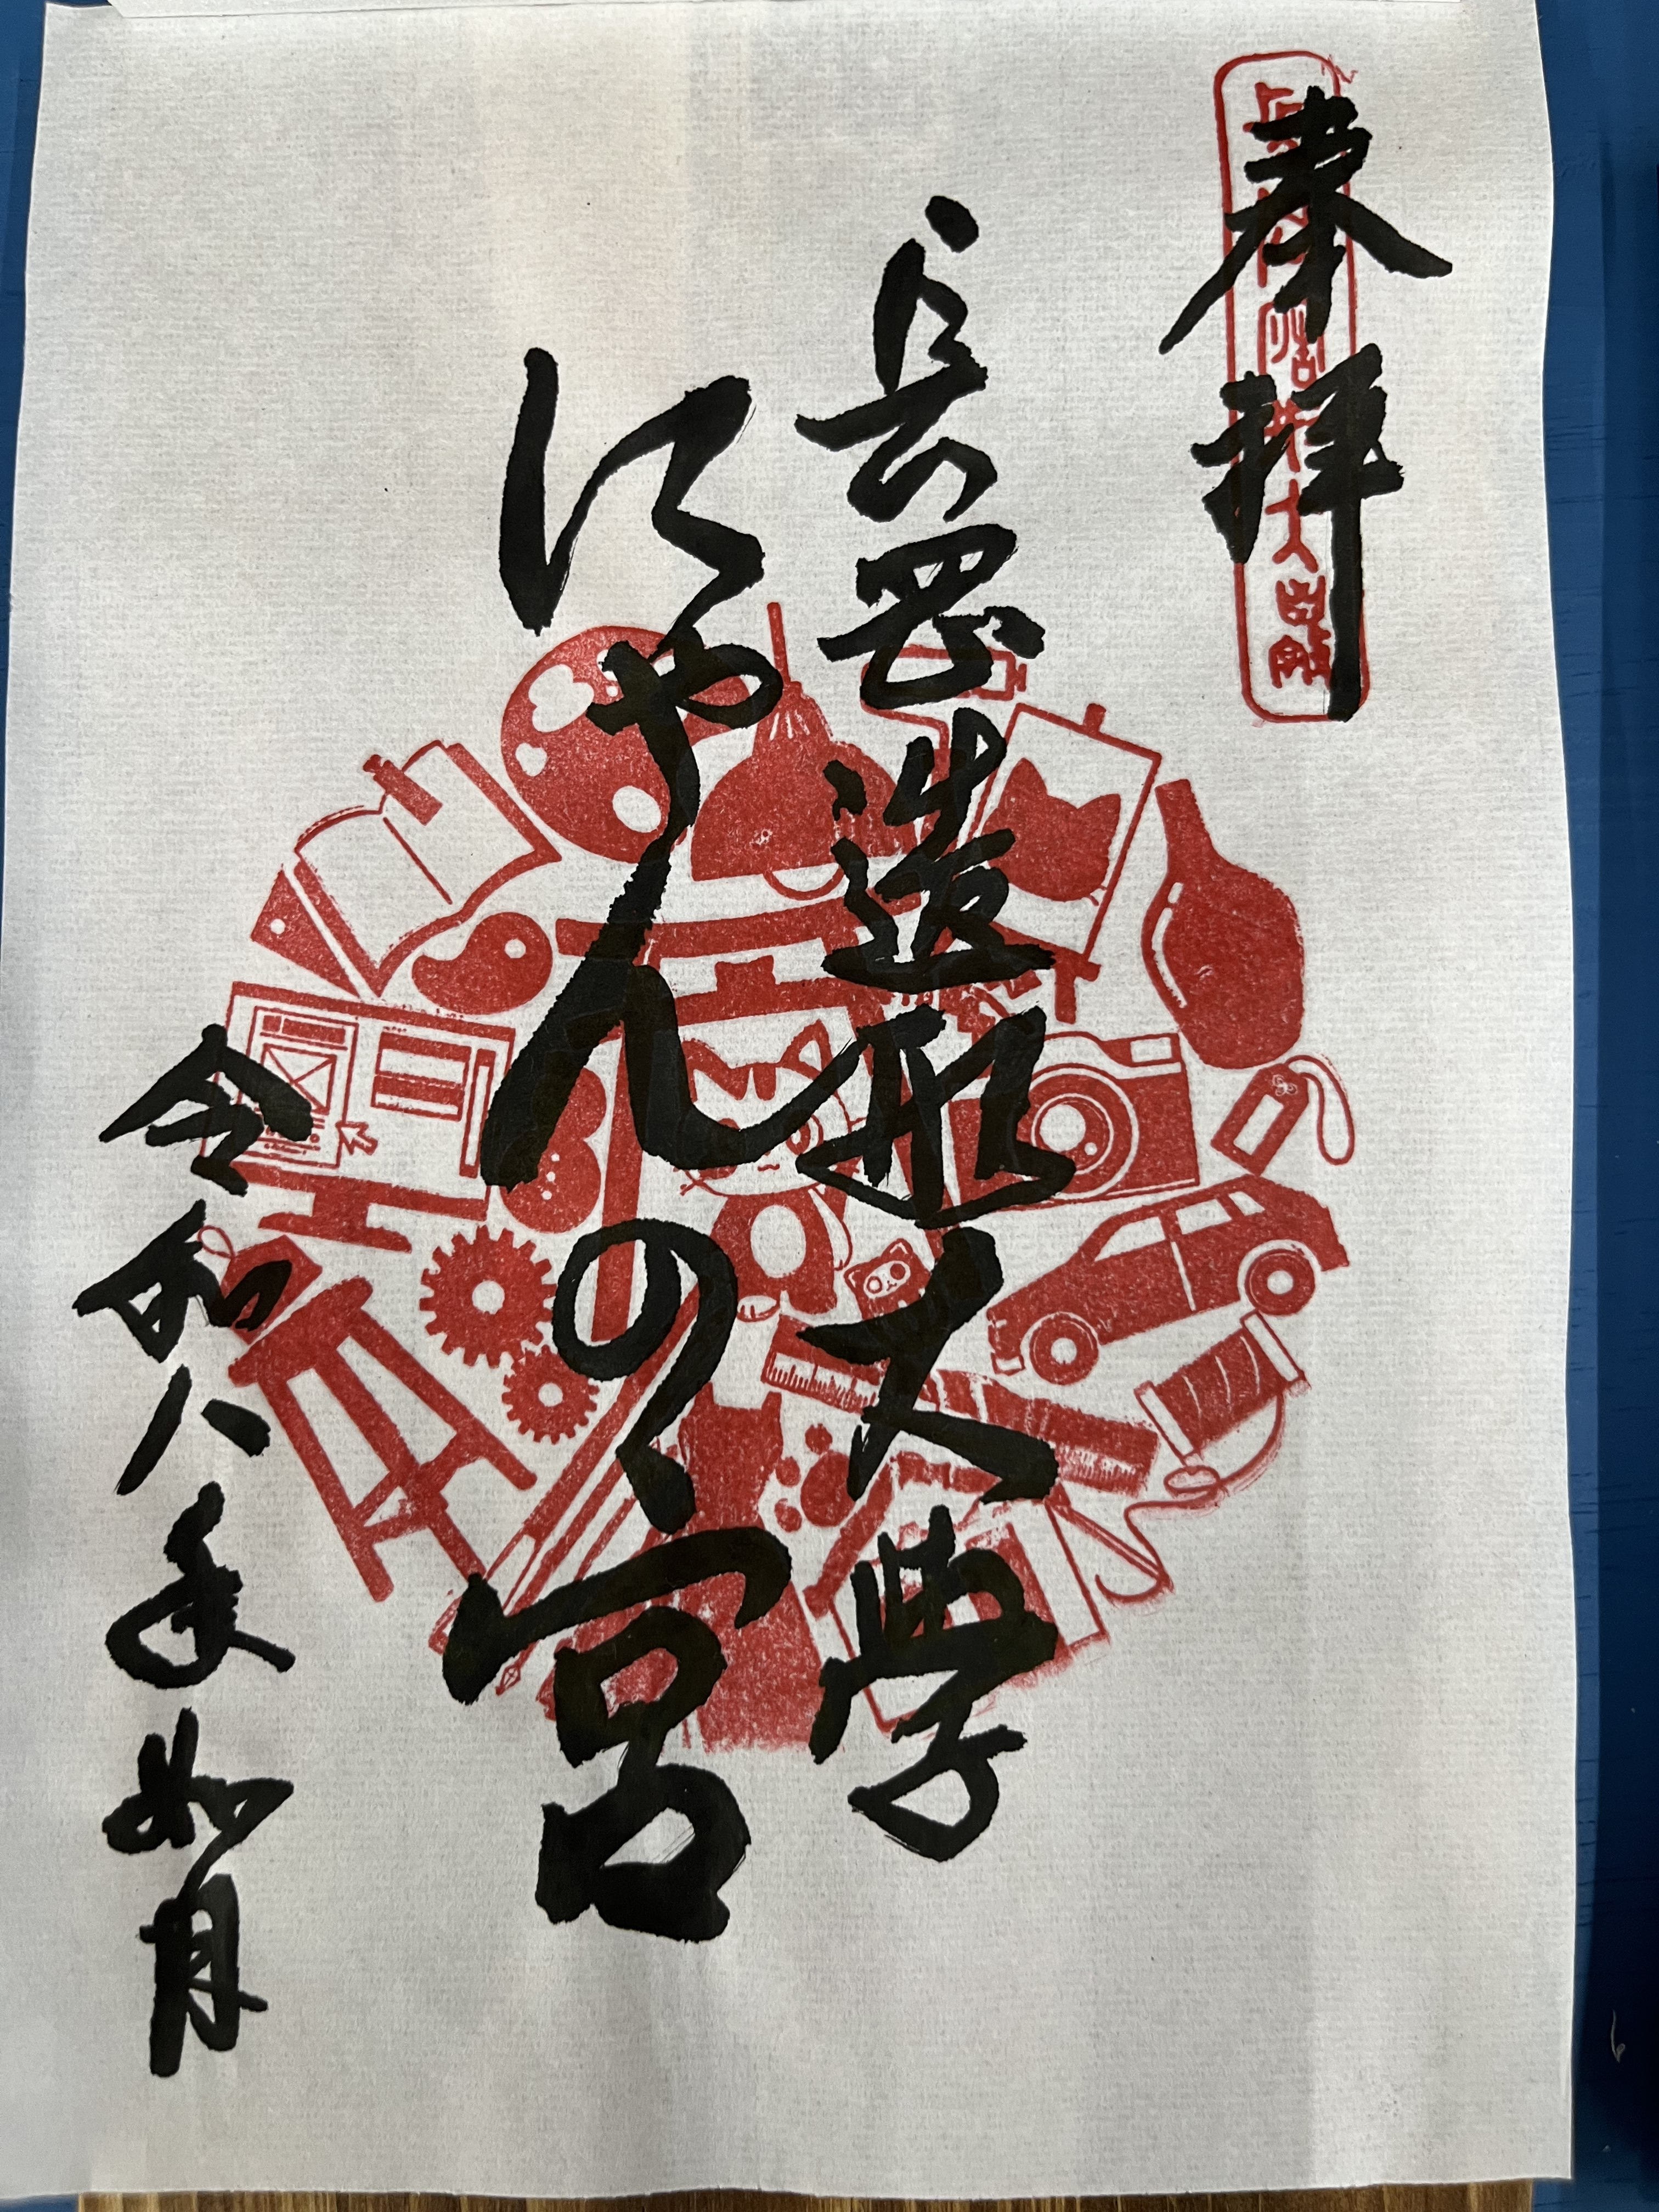 奉拝
長岡造形大学
にゃんのく宮
令和八年如月